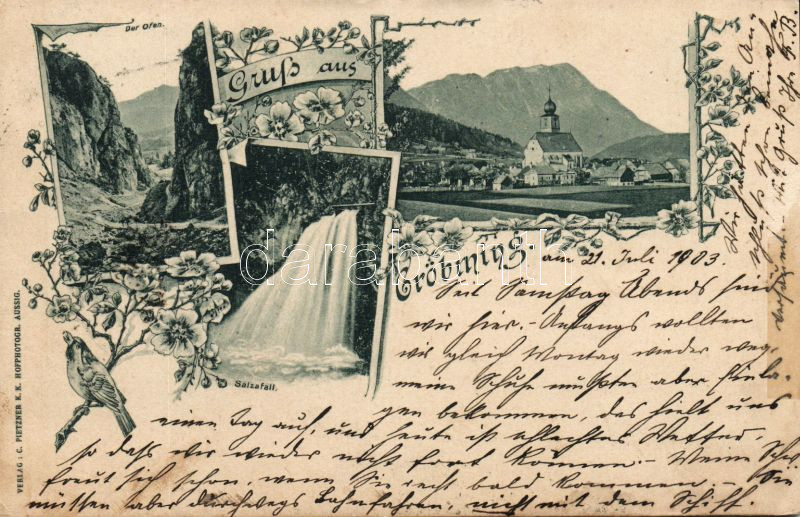 Der Ofen.
Gruß aus
Gröbming.
Salzafall.
VERLAG: C. PIETZNER K.K. HOFPHOTOGR. AUSSIG.
darabanth
am 21. Juli 1903.
Seit Samstag Abends sind
wir hier. Anfangs wollten
wir gleich Montag wieder weg,
meine Schuhe mußten aber
gen bekommen, das hielt uns
einen Tag auf, und heute ist schlechtes Wetter,
so dass wir wieder nicht fort können. – Meine
freut sich schon, wenn Sie recht bald kommen. – Sie
müssen aber durchwegs Bahnfahren, nicht mit dem Schiff.
Wir hatten
schluß schon
Gruß Ihr F.B.